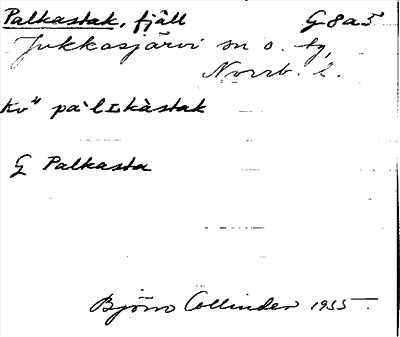 Palkastak, fjäll G 8 a 5
Jukkasjärvi sn o. tg,
Norrb. l.
Kv" pa`lʟkàstak
G Palkasta
Björn Collinder 1955.